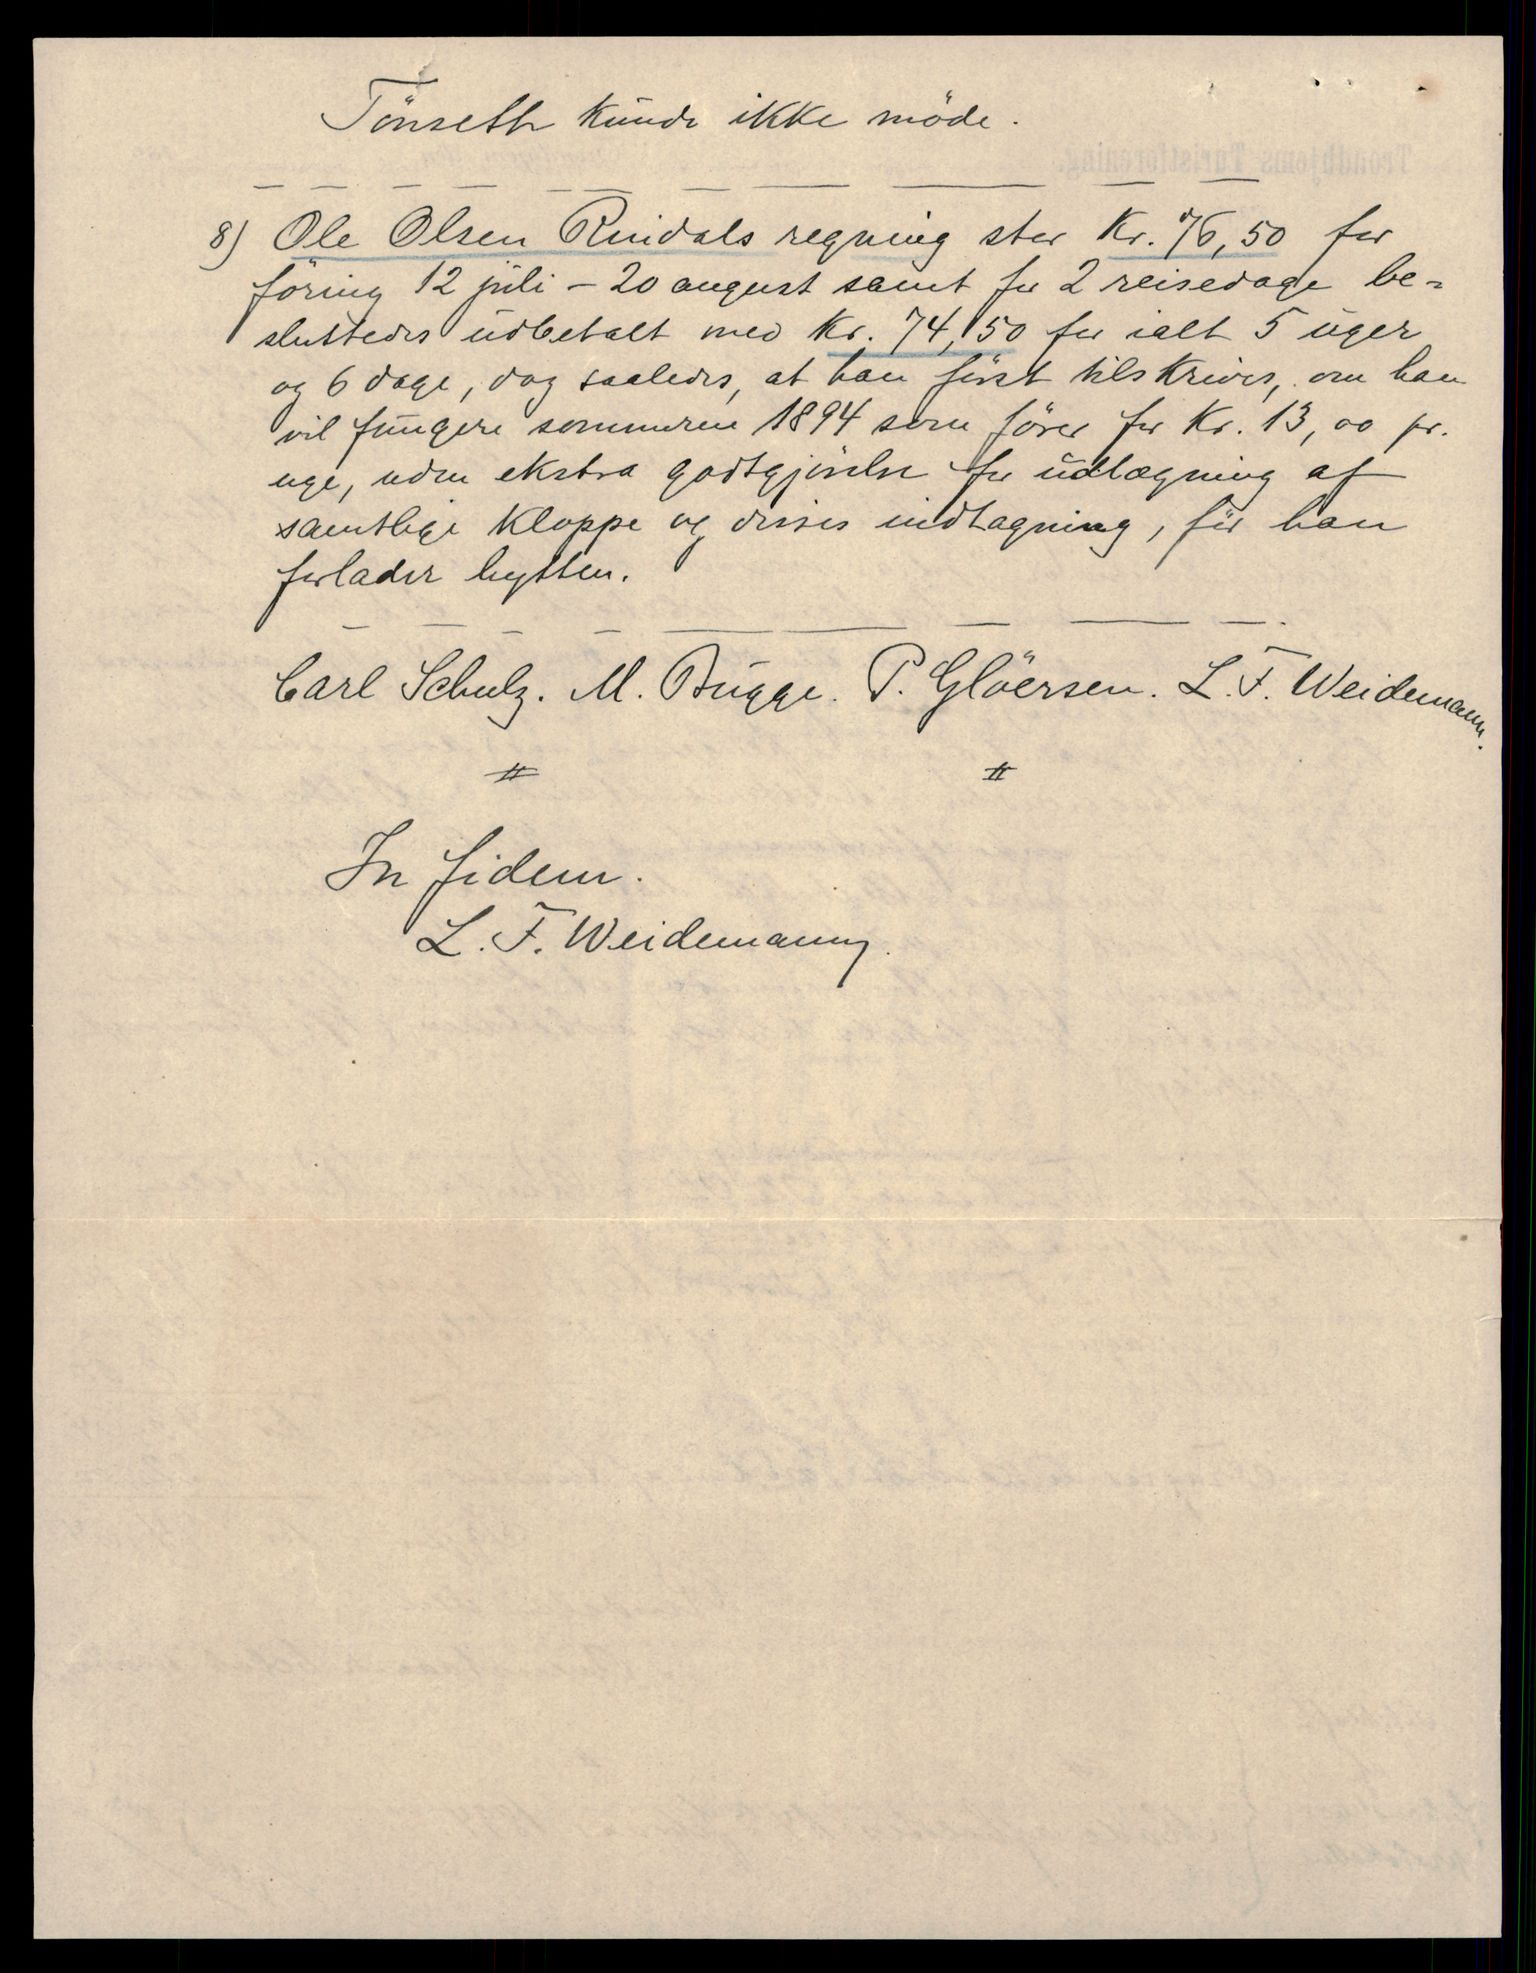 Tönseth kunde ikke möde.
8) Ole Olsen Rindals regning stor Kr. 76,50 for
föring 12 juli – 20 august samt for 2 reisedage be=
sluttedes udbetalt med Kr. 74,50 for ialt 5 uger
og 6 dage, dog saaledes, at han först tilskrives, om han
vil fungere sommeren 1894 som förer for Kr. 13,00 pr.
uge, uden ekstra godtgjörelse for udlægning af
samtlige kloppe og disses indtagning, för han
forlader hytten.
Carl Schulz. M. Bugge. P. Glöersen. L. F. Weidemann.
In fidem.
L. F. Weidemann.
Trondhjems Turistforening.